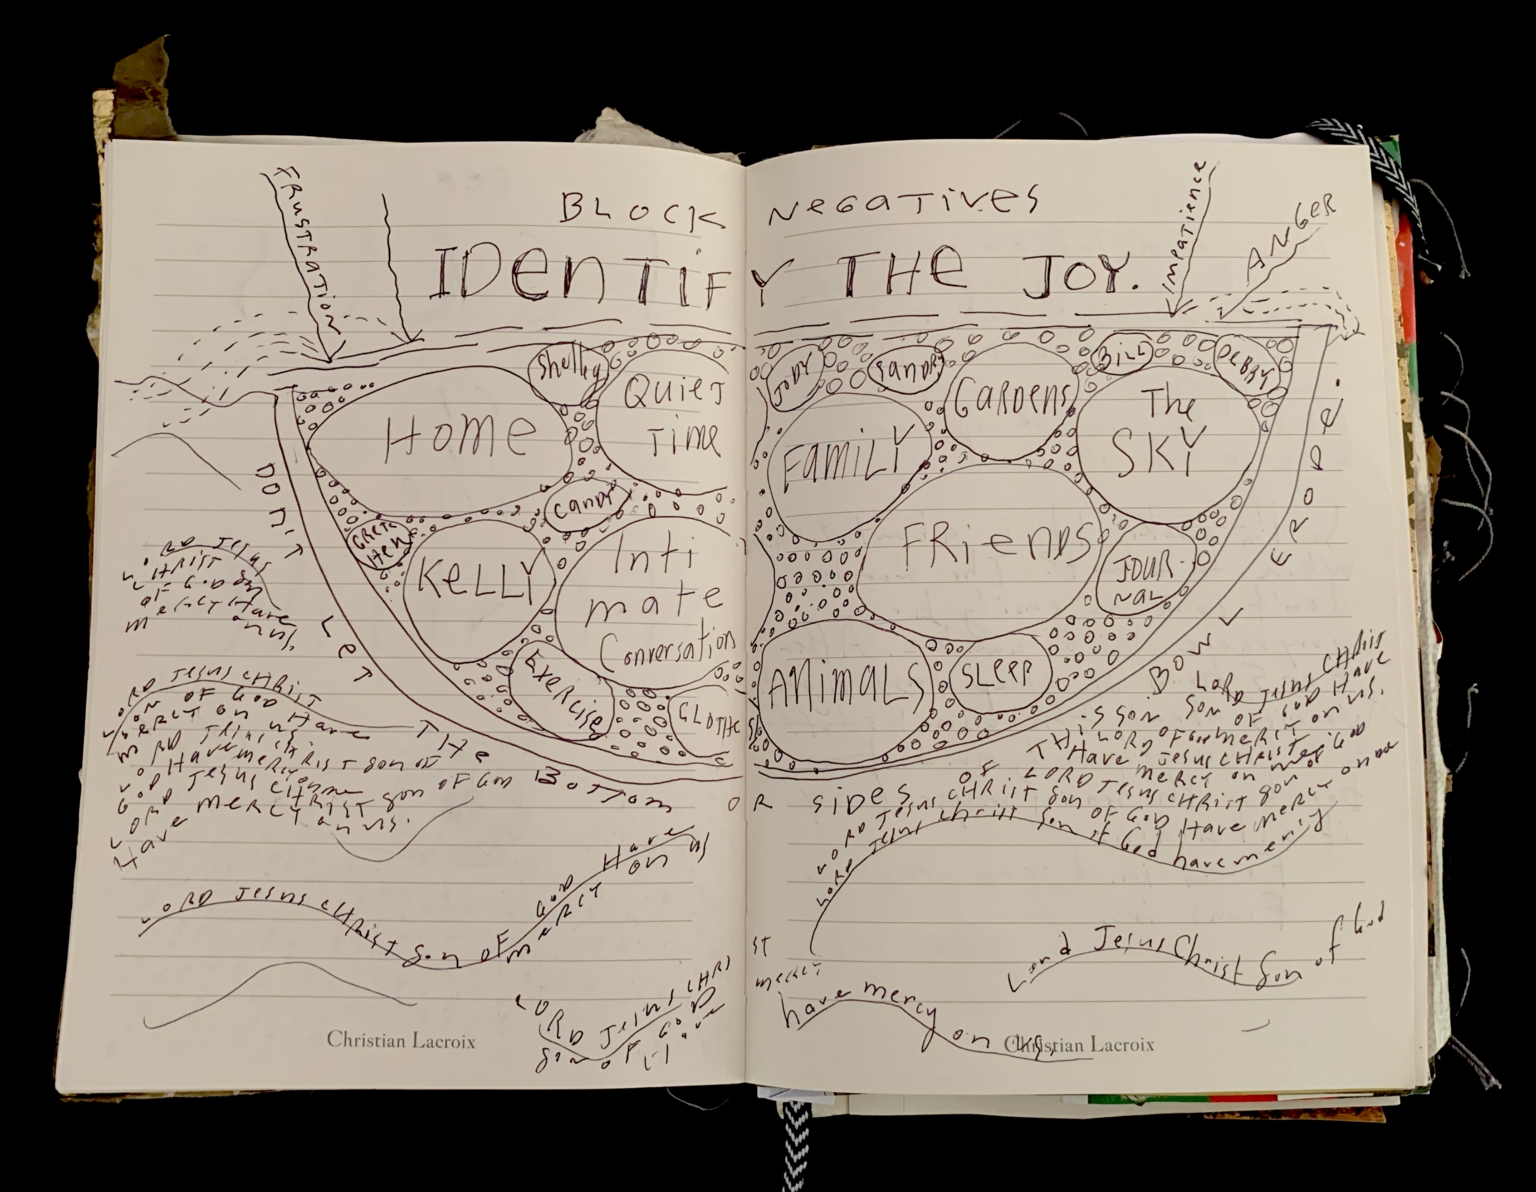 BLOCK NEGATIVES
IDENTIFY THE JOY.
FRUSTRATION
IMPATIENCE
ANGER
Shelley
QUIET
TIME
HOME
JODY
SANDRA
GARDENS
BILL
DEBBY
The
SKY
FAMILY
CANDY
GRETC
HEN
KELLY
Inti
mate
Conversation
FRIENDS
JOUR-
NAL
EXERCISE
CLOTHES
ANIMALS
SLEEP
DON'T LET THE BOTTOM OR SIDES OF THIS BOWL ERODE.
LORD JESUS
CHRIST SON
OF GOD
Have
MERCY
ON US.
LORD JESUS CHRIST
SON OF GOD Have
MERCY ON US
LORD JESUS CHRIST SON OF
GOD Have MERCY ON me
LORD JESUS CHRIST SON OF GOD
Have MERCY ON US.
LORD JESUS CHRIST Son OF GOD Have
MERCY ON US
LORD JESUS CHRI ST
Son OF GOD
Have MERCY
LORD JESUS CHRIST
SON OF GOD Have
MERCY ON US.
LORD JESUS CHRIST
Have MERCY ON
LORD JESUS CHRIST SON OF GOD
LORD JESUS CHRIST SON OF GOD Have MERCY ON
LORD Jesus Christ Son of God have mercy
Lord Jesus Christ Son of God
have mercy on us.
Christian Lacroix
Christian Lacroix